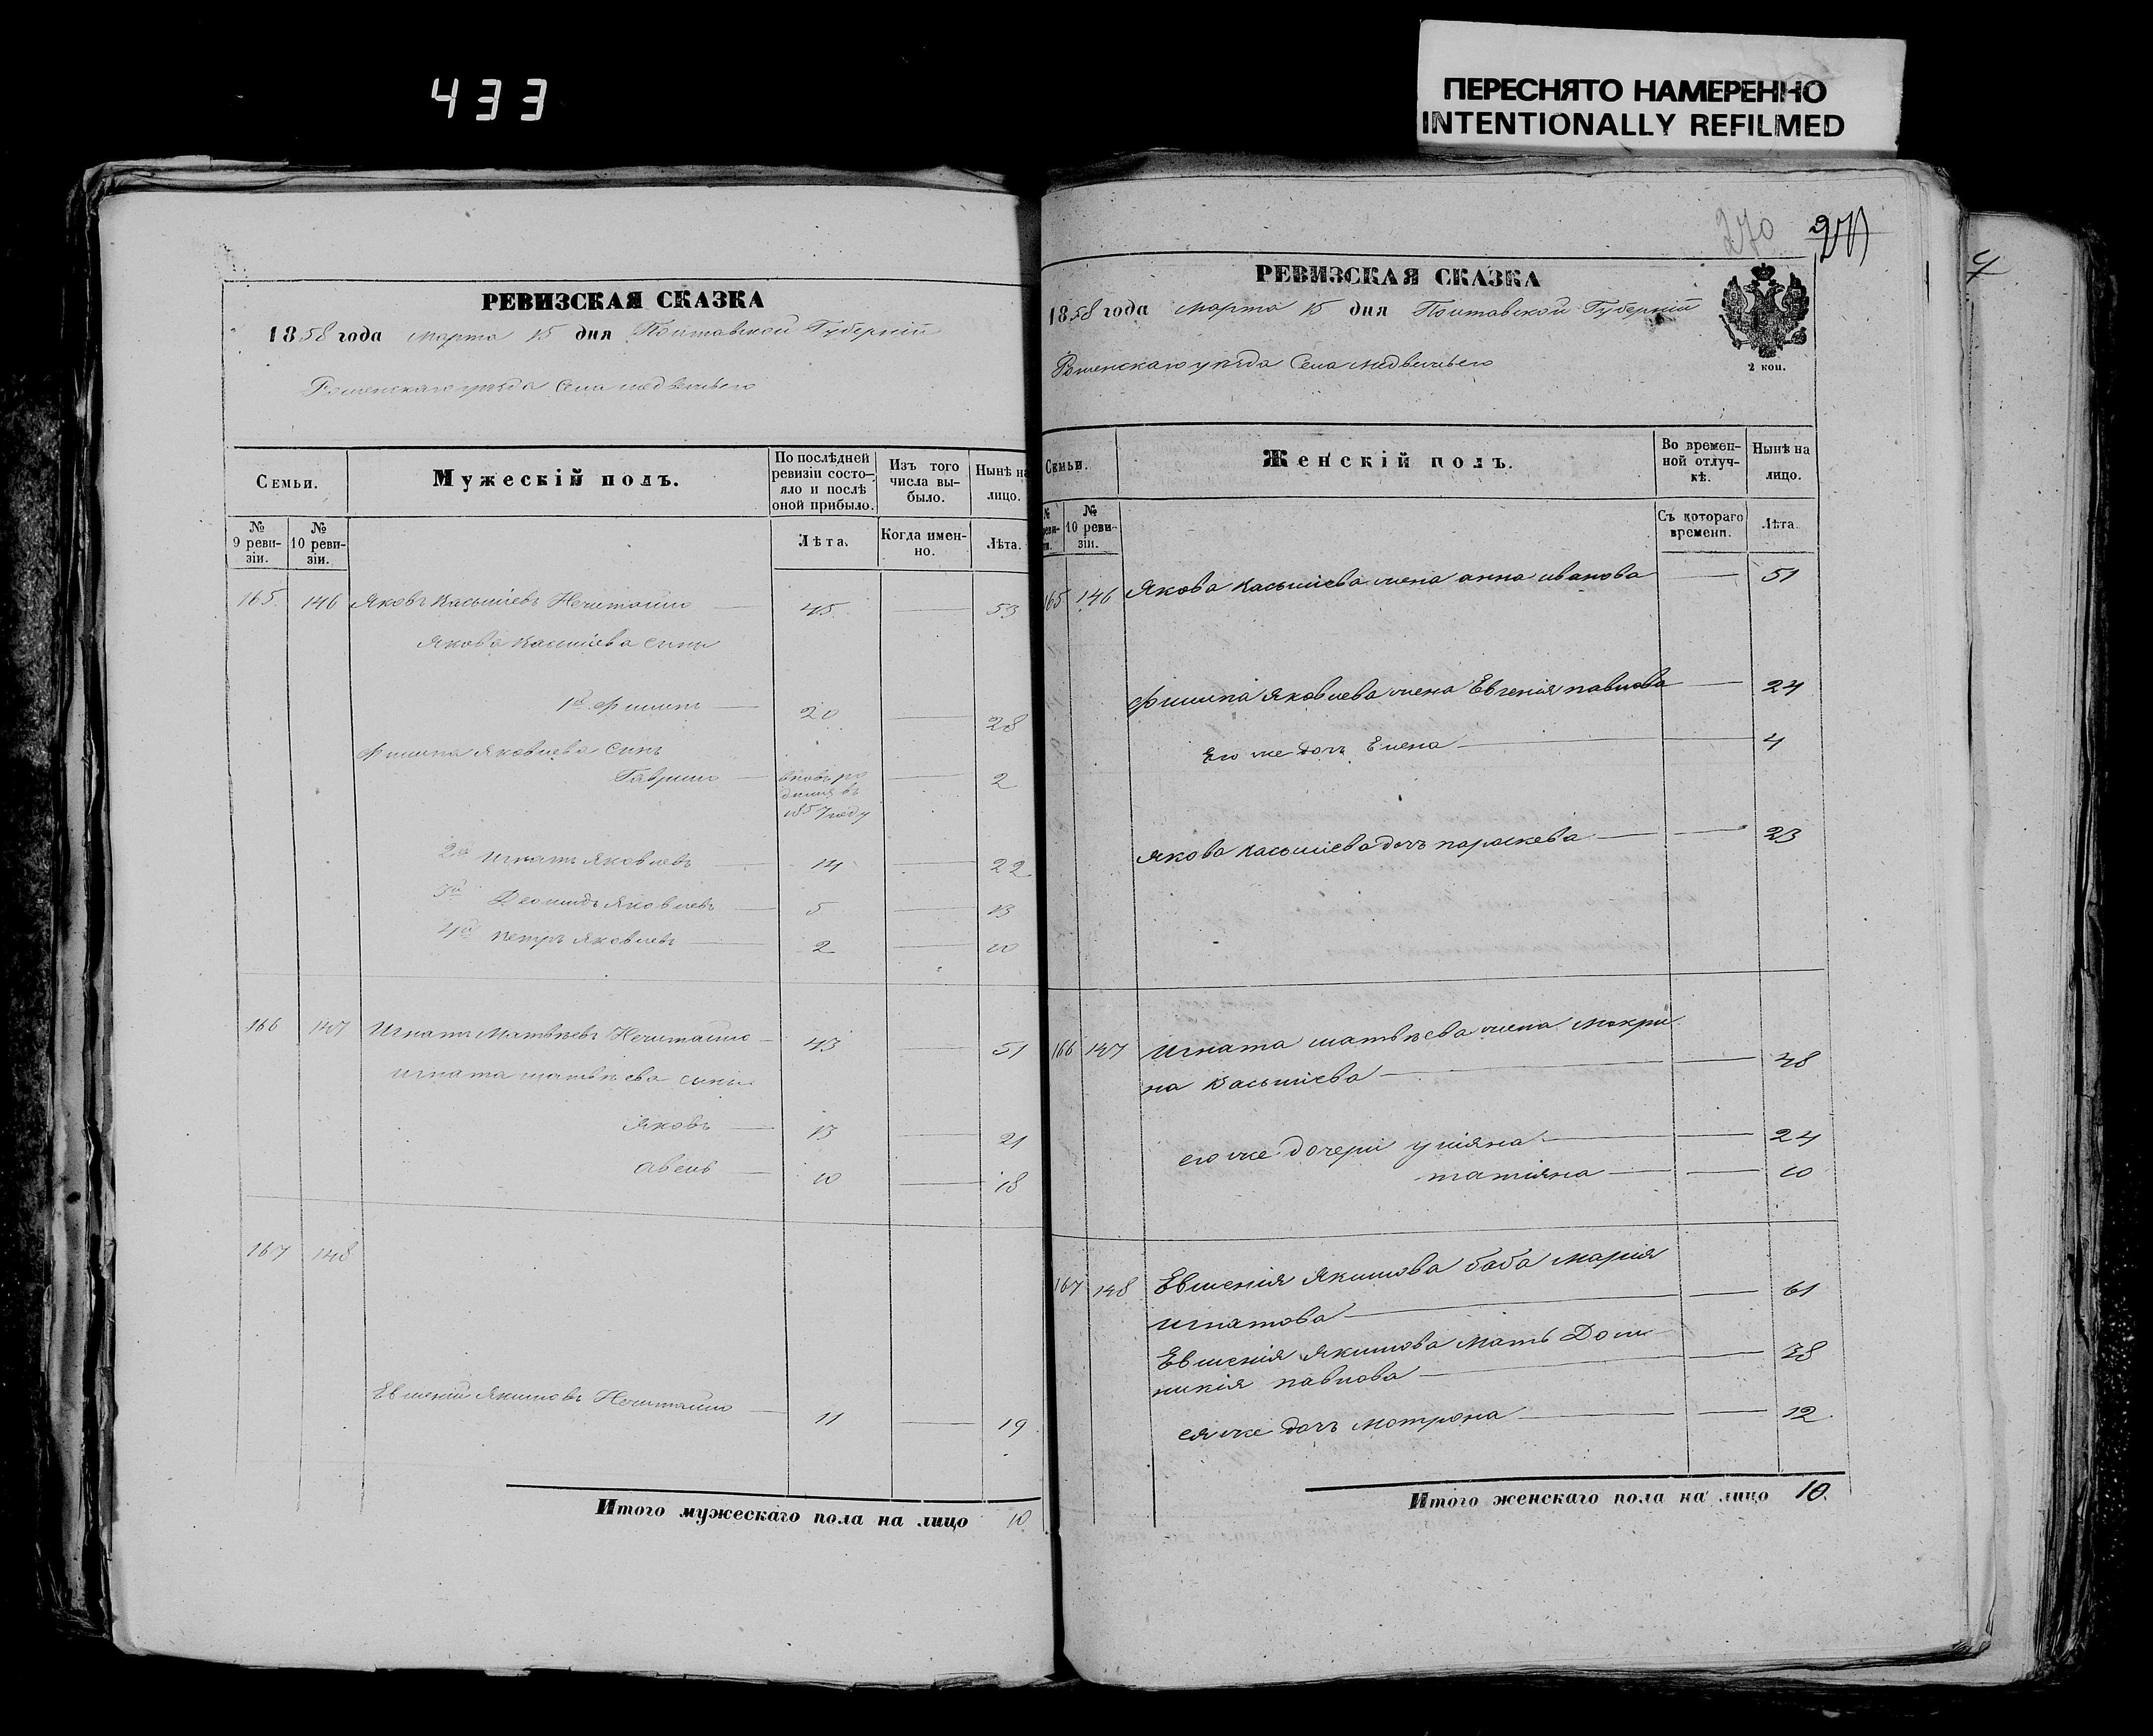 433
ПЕРЕСНЯТО НАМЕРЕННО
INTENTIONALLY REFILMED
РЕВИЗСКАЯ СКАЗКА
1858 года марта 15 дня Полтавской Губерніи
Роменскаго уезда Села медвежьего
Семьи.
Мужескій полъ.
По послѣдней ревизіи состо-
яло и послѣ
оной прибыло.
Изъ того
числа вы-
было.
Нынѣ на
лицо.
№
9 реви-
зіи.
№
10 реви-
зіи.
Лѣта.
Когда имен-
но.
Лѣта.
165 146 Яковъ Касьяновъ Нечитайло 45 53
Якова
1й Филипъ 20 28
Филипа Яковлева Сынъ
Гаврило вновь ро 2
1857 году
2й игнатъ Яковлевъ 14 22
3й Леонидъ Яковлевъ 5 13
4й петръ Яковлевъ 2 10
166 147 Игнатъ Матвѣевъ Нечитайло 43 51
игната матвѣева сыны
Яковъ 13 21
авель 10 18
167 148
Евменій Якимовъ Нечитайло 11 19
Итого мужескаго пола на лицо 10
270
РЕВИЗСКАЯ СКАЗКА
1858 года марта 15 дня Полтавской Губерніи
Роменскаго уѣзда Села медвежьего
2 коп.
Семьи.
Женскій полъ.
Во времен-
ной отлуч-
кѣ.
Нынѣ на
лицо.
№
10 реви-
зіи.
Съ котораго
времени.
Лѣта.
165 146 Якова жена анна иванова 51
Филипа Яковлева жена Евгенія павлова 24
Его же дочь Елена 4
Якова дочь параскева 23
166 147 Игната матвѣева жена макри
на 48
его же дочери улiяна 24
татiяна 10
167 148 Евменія Якимова баба марія
игнатова 61
Евменія Якимова мать Доми
никія павлова 38
ея же дочь мотрона 12
Итого женскаго пола на лицо 10.